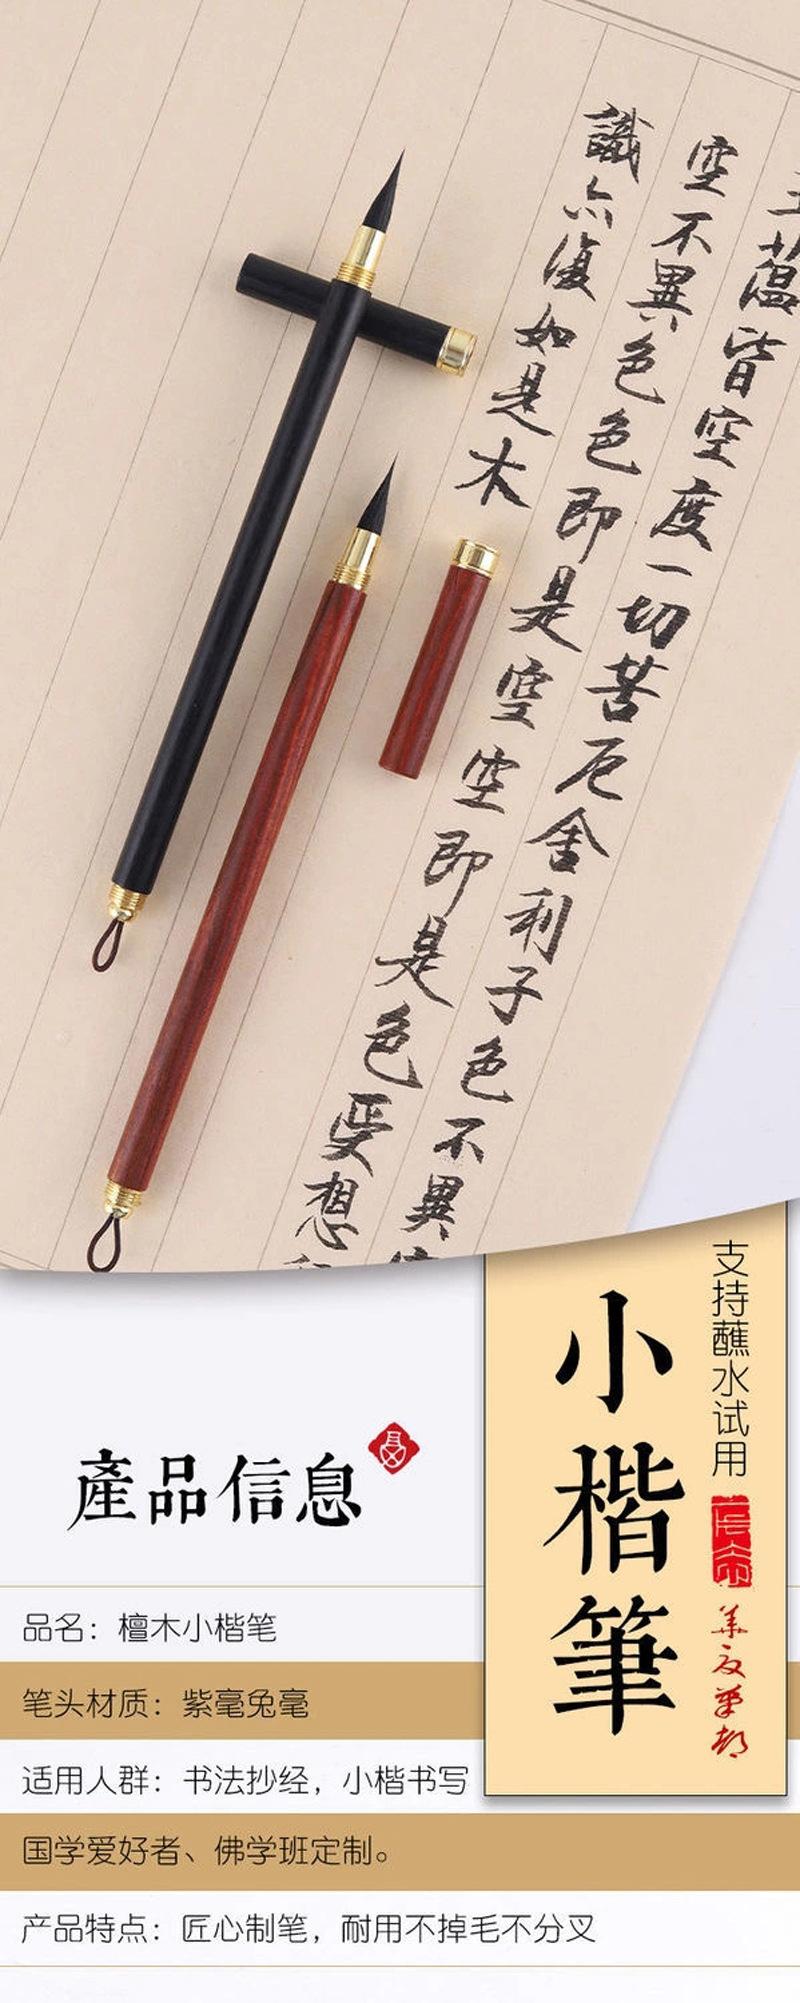 五蘊皆空度一切苦厄舍利子色不異
空不異色色即是空空即是色受想
識亦復如是
支持蘸水试用
小楷筆
產品信息
品名：檀木小楷笔
笔头材质：紫毫兔毫
适用人群：书法抄经，小楷书写
国学爱好者、佛学班定制。
产品特点：匠心制笔，耐用不掉毛不分叉